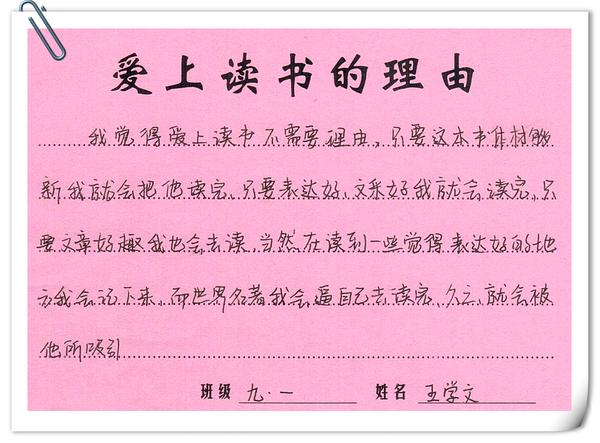 爱上读书的理由
我觉得爱上读书不需要理由,只要这本书体材够
新我就会把他读完,只要表达好,文采好我就会读完,只
要文章好趣我也会去读,当然在读到一些觉得表达好的地
方我会记下来,而世界名著我会逼自己去读完,久之,就会被
他所吸引
班级 九·一 姓名 王学文